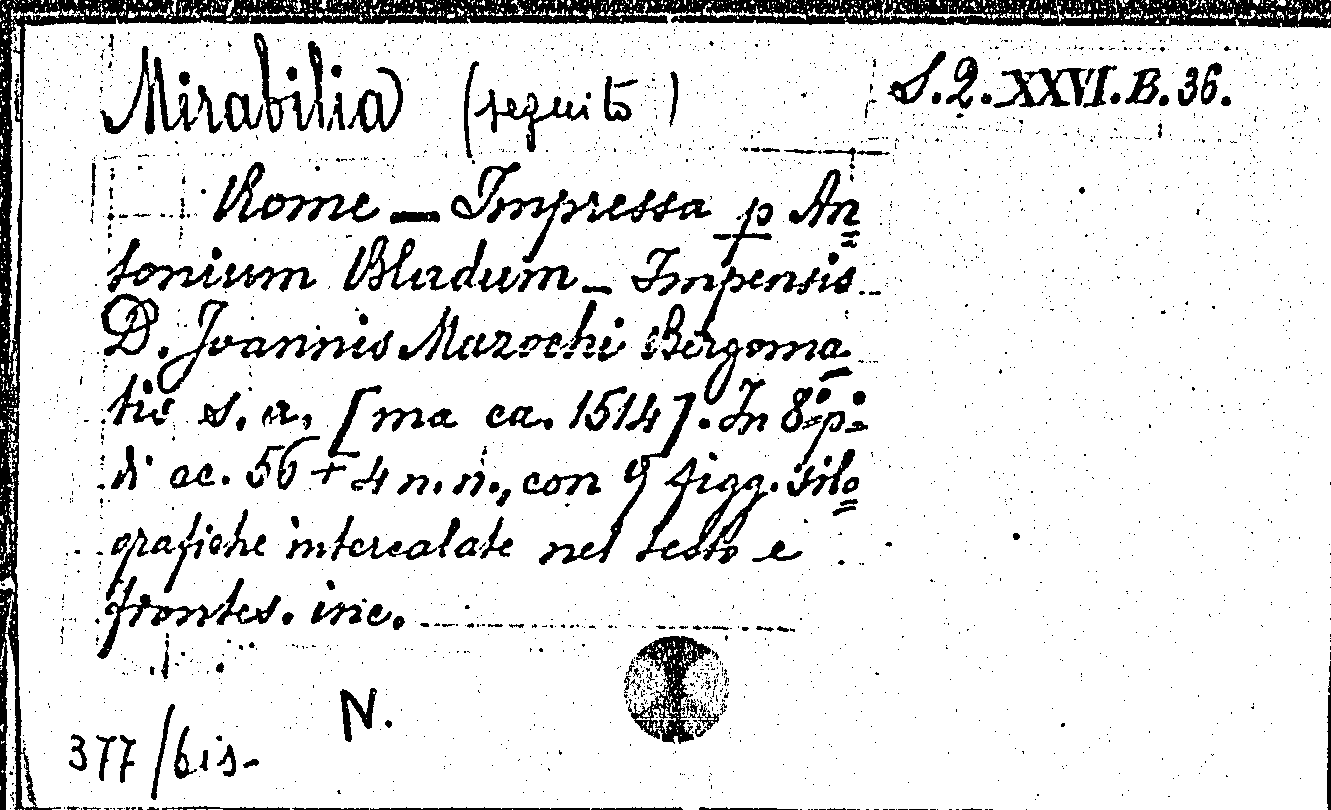 Mirabilia (seguito) S.Q.XXVI.B.36.
Rome — Impressa p An=
tonium Bladum — Impensis
D. Joannis Mazochi Bergoma-
tis s. a. [ma ca. 1514]. In 8° p°
di cc. 56 + 4 n. n., con 9 figg. silo=
grafiche intercalate nel testo e
frontes. inc.
N.
377/bis-